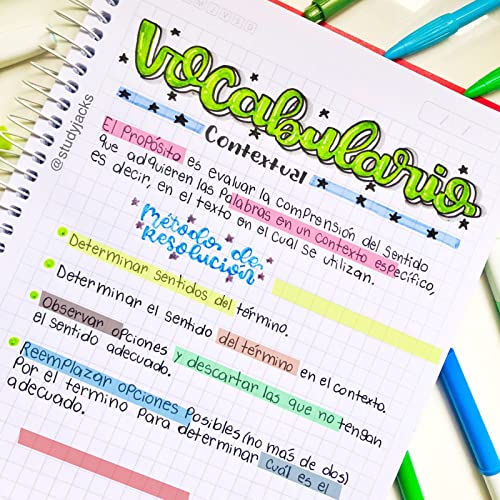 @studyjacks
Vocabulario
Contextual
El Propósito es evaluar la comprensión del sentido
que adquieren las palabras en un contexto específico,
es decir, en el texto en el cual se utilizan.
Método de
Resolución
Determinar sentidos del término.
Determinar el sentido del término en el contexto.
Observar opciones y descartar las que no tengan
el sentido adecuado.
Reemplazar opciones Posibles (no mas de dos)
Por el termino Para determinar cuál es el
adecuado.